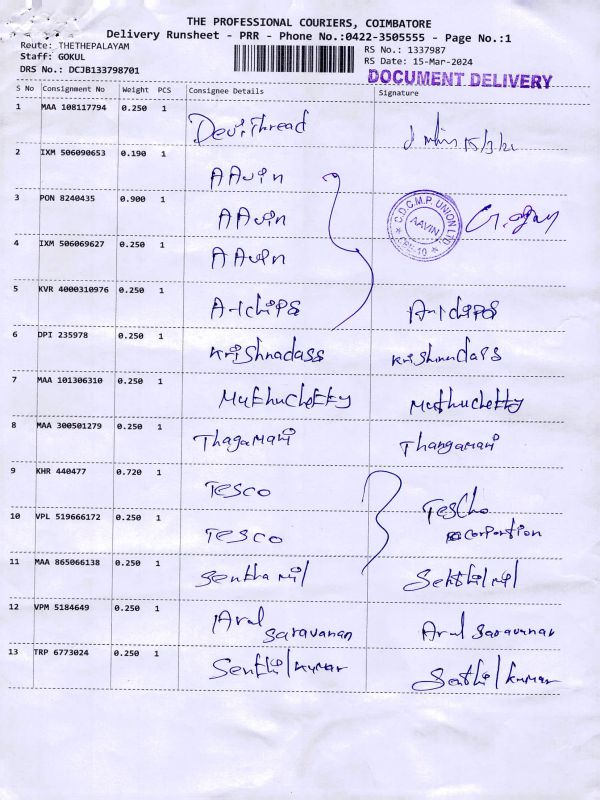 THE PROFESSIONAL COURIERS, COIMBATORE
Delivery Runsheet - PRR - Phone No.:0422-3505555 - Page No.:1
Reute: THETHEPALAYAM
RS No.: 1337987
Staff: GOKUL
RS Date: 15-Mar-2024
DRS No.: DCJB133798701
DOCUMENT DELIVERY
S No Consignment No Weight PCS Consignee Details Signature
1 MAA 108117794 0.250 1 Devi Thread 15/3/24
2 IXM 506090653 0.190 1 AAvin
3 PON 8240435 0.900 1 AAvin
C.D.C.M.P. UNION LTD AAVIN CBE-10
4 IXM 506069627 0.250 1 AAvin
5 KVR 4000310976 0.250 1 A-1chips A-1chips
6 DPI 235978 0.250 1 Krishnadass Krishnadass
7 MAA 101306310 0.250 1 Muthuchetty Muthuchetty
8 MAA 300501279 0.250 1 Thagamani Thangamani
9 KHR 440477 0.720 1 Tesco Tescho
10 VPL 519666172 0.250 1 Tesco corportion
11 MAA 865066138 0.250 1 Senthamil
12 VPM 5184649 0.250 1 Arul Saravanan Arul Saravanan
13 TRP 6773024 0.250 1 Senthilkumar Senthilkumar